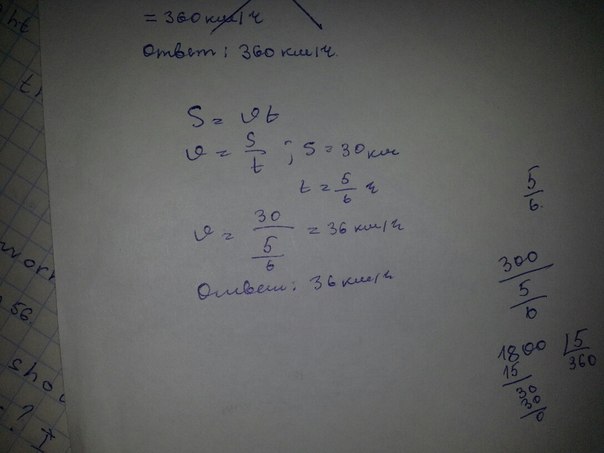 = 360 км/ч
Ответ: 360 км/ч.
S = vt
v = S/t ; S = 30 км
t = 5/6 ч
v = 30/(5/6) = 36 км/ч
Ответ: 36 км/ч
5/6
300/(5/6)
1800 | 5
15 360
30
30
0
56.